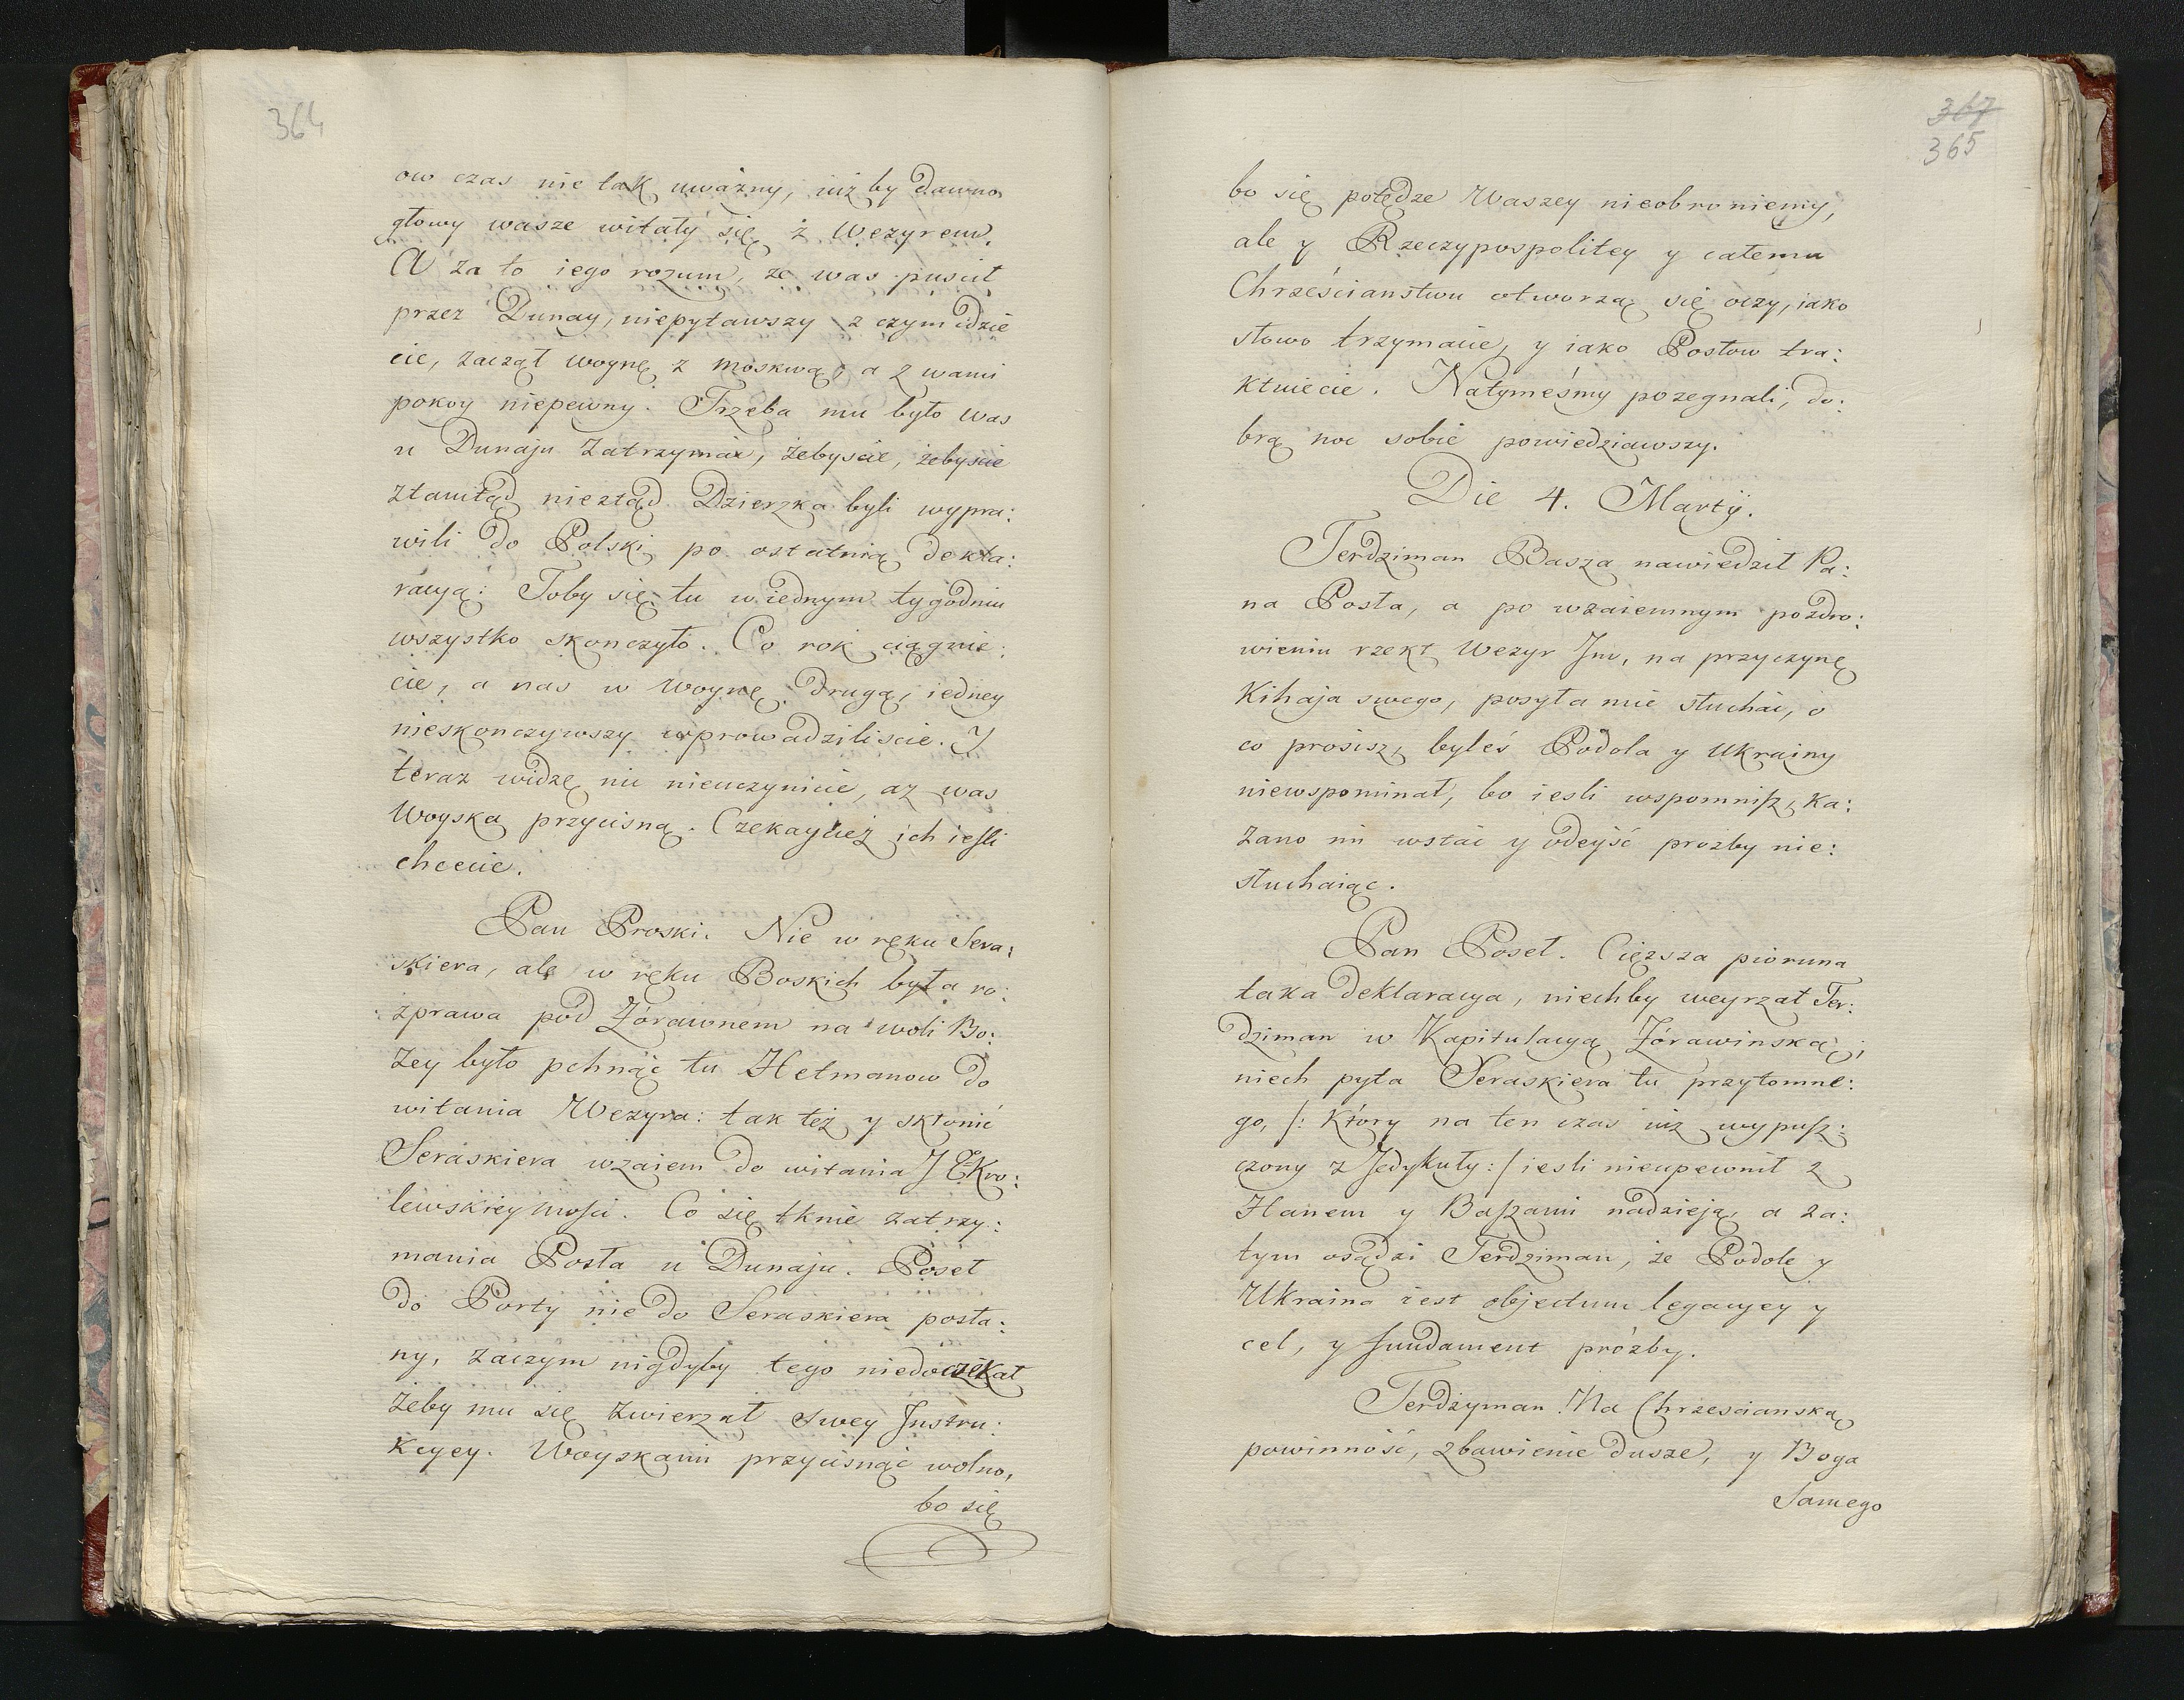 364
ow czas nie tak uważny, iuż by dawno
głowy wasze witały się z Wezyrem.
A za to iego rozum, że was puscił
przez Dunay, niepytawszy z czym idzie
cie, zaczął woynę z Moskwą, a z wami
pokoy niepewny. Trzeba mu było was
u Dunaju zatrzymać, żebyscie, żebyscie
ztamtąd nieztąd Dzierzka byli wypra:
wili do Polski po ostatnią dekla:
racyą: Toby się tu w iednym tygodniu
wszystko skonczyło. Co rok ciągnie:
cie, a nas w woynę drugą, iedney
nieskonczywszy wprowadziliscie. Y
teraz widzę nic nieuczynicie, aż was
Woyska przycisną. Czekayciesz ich iesli
chcecie.
Pan Proski. Nie w ręku Sera:
skiera, ale w ręku Boskich była ro:
zprawa pod Żórawnem na woli Bo:
żey było pchnąć tu Hetmanow do
witania Wezyra: tak też y skłonić
Seraskiera wzaiem do witania J. Kro:
lewskiey Mosci. Co się tknie zatrzy:
mania Posła u Dunaju. Poseł
do Porty nie do Seraskiera posła:
ny, zaczym nigdyby tego niedoczekał
żeby mu się zwierzał swey Instru:
kcyey. Woyskami przycisnąć wolno,
bo się
367
365
bo się potędze Waszey nieobroniemy,
ale y Rzeczypospolitey y całemu
Chrześcianstwu otworzą się oczy, iako
słowo trzymacie, y iako Posłow tra:
ktuiecie. Natymeśmy pozegnali, do:
brą noc sobie powiedziawszy.
Die 4. Martÿ.
Terdziman Basza nawiedził Pa:
na Posła, a po wzaiemnym pozdro:
wieniu rzekł Wezyr Jm, na przyczynę
Kihaja swego, posyła mie słuchać, o
co prosisz, byleś Podola y Ukrainy
niewspominał, bo iesli wspomnisz, ka:
zano mi wstać y odeyść prozby nie:
słuchaiąc.
Pan Poseł. Cięzsza pioruna
taka deklaracya, niechby weyrzał Ter:
dziman w Kapitulacyą Żórawinską;
niech pyta Seraskiera tu przytomne:
go, /: który na ten czas iuż wypusz:
czony z Jedykuły :/ iesli nieupewnił z
Hanem y Baszami nadzieją, a za:
tym osądzi Terdziman, że Podole y
Ukraina iest objectum legacyey y
cel, y fundament prózby.
Terdzyman. Na Chrzescianską
powinność, zbawienie dusze, y Boga
Samego